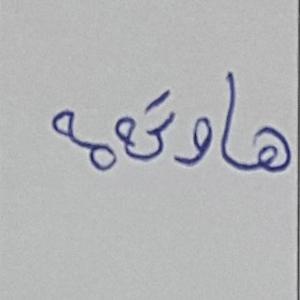 هاوتەمە